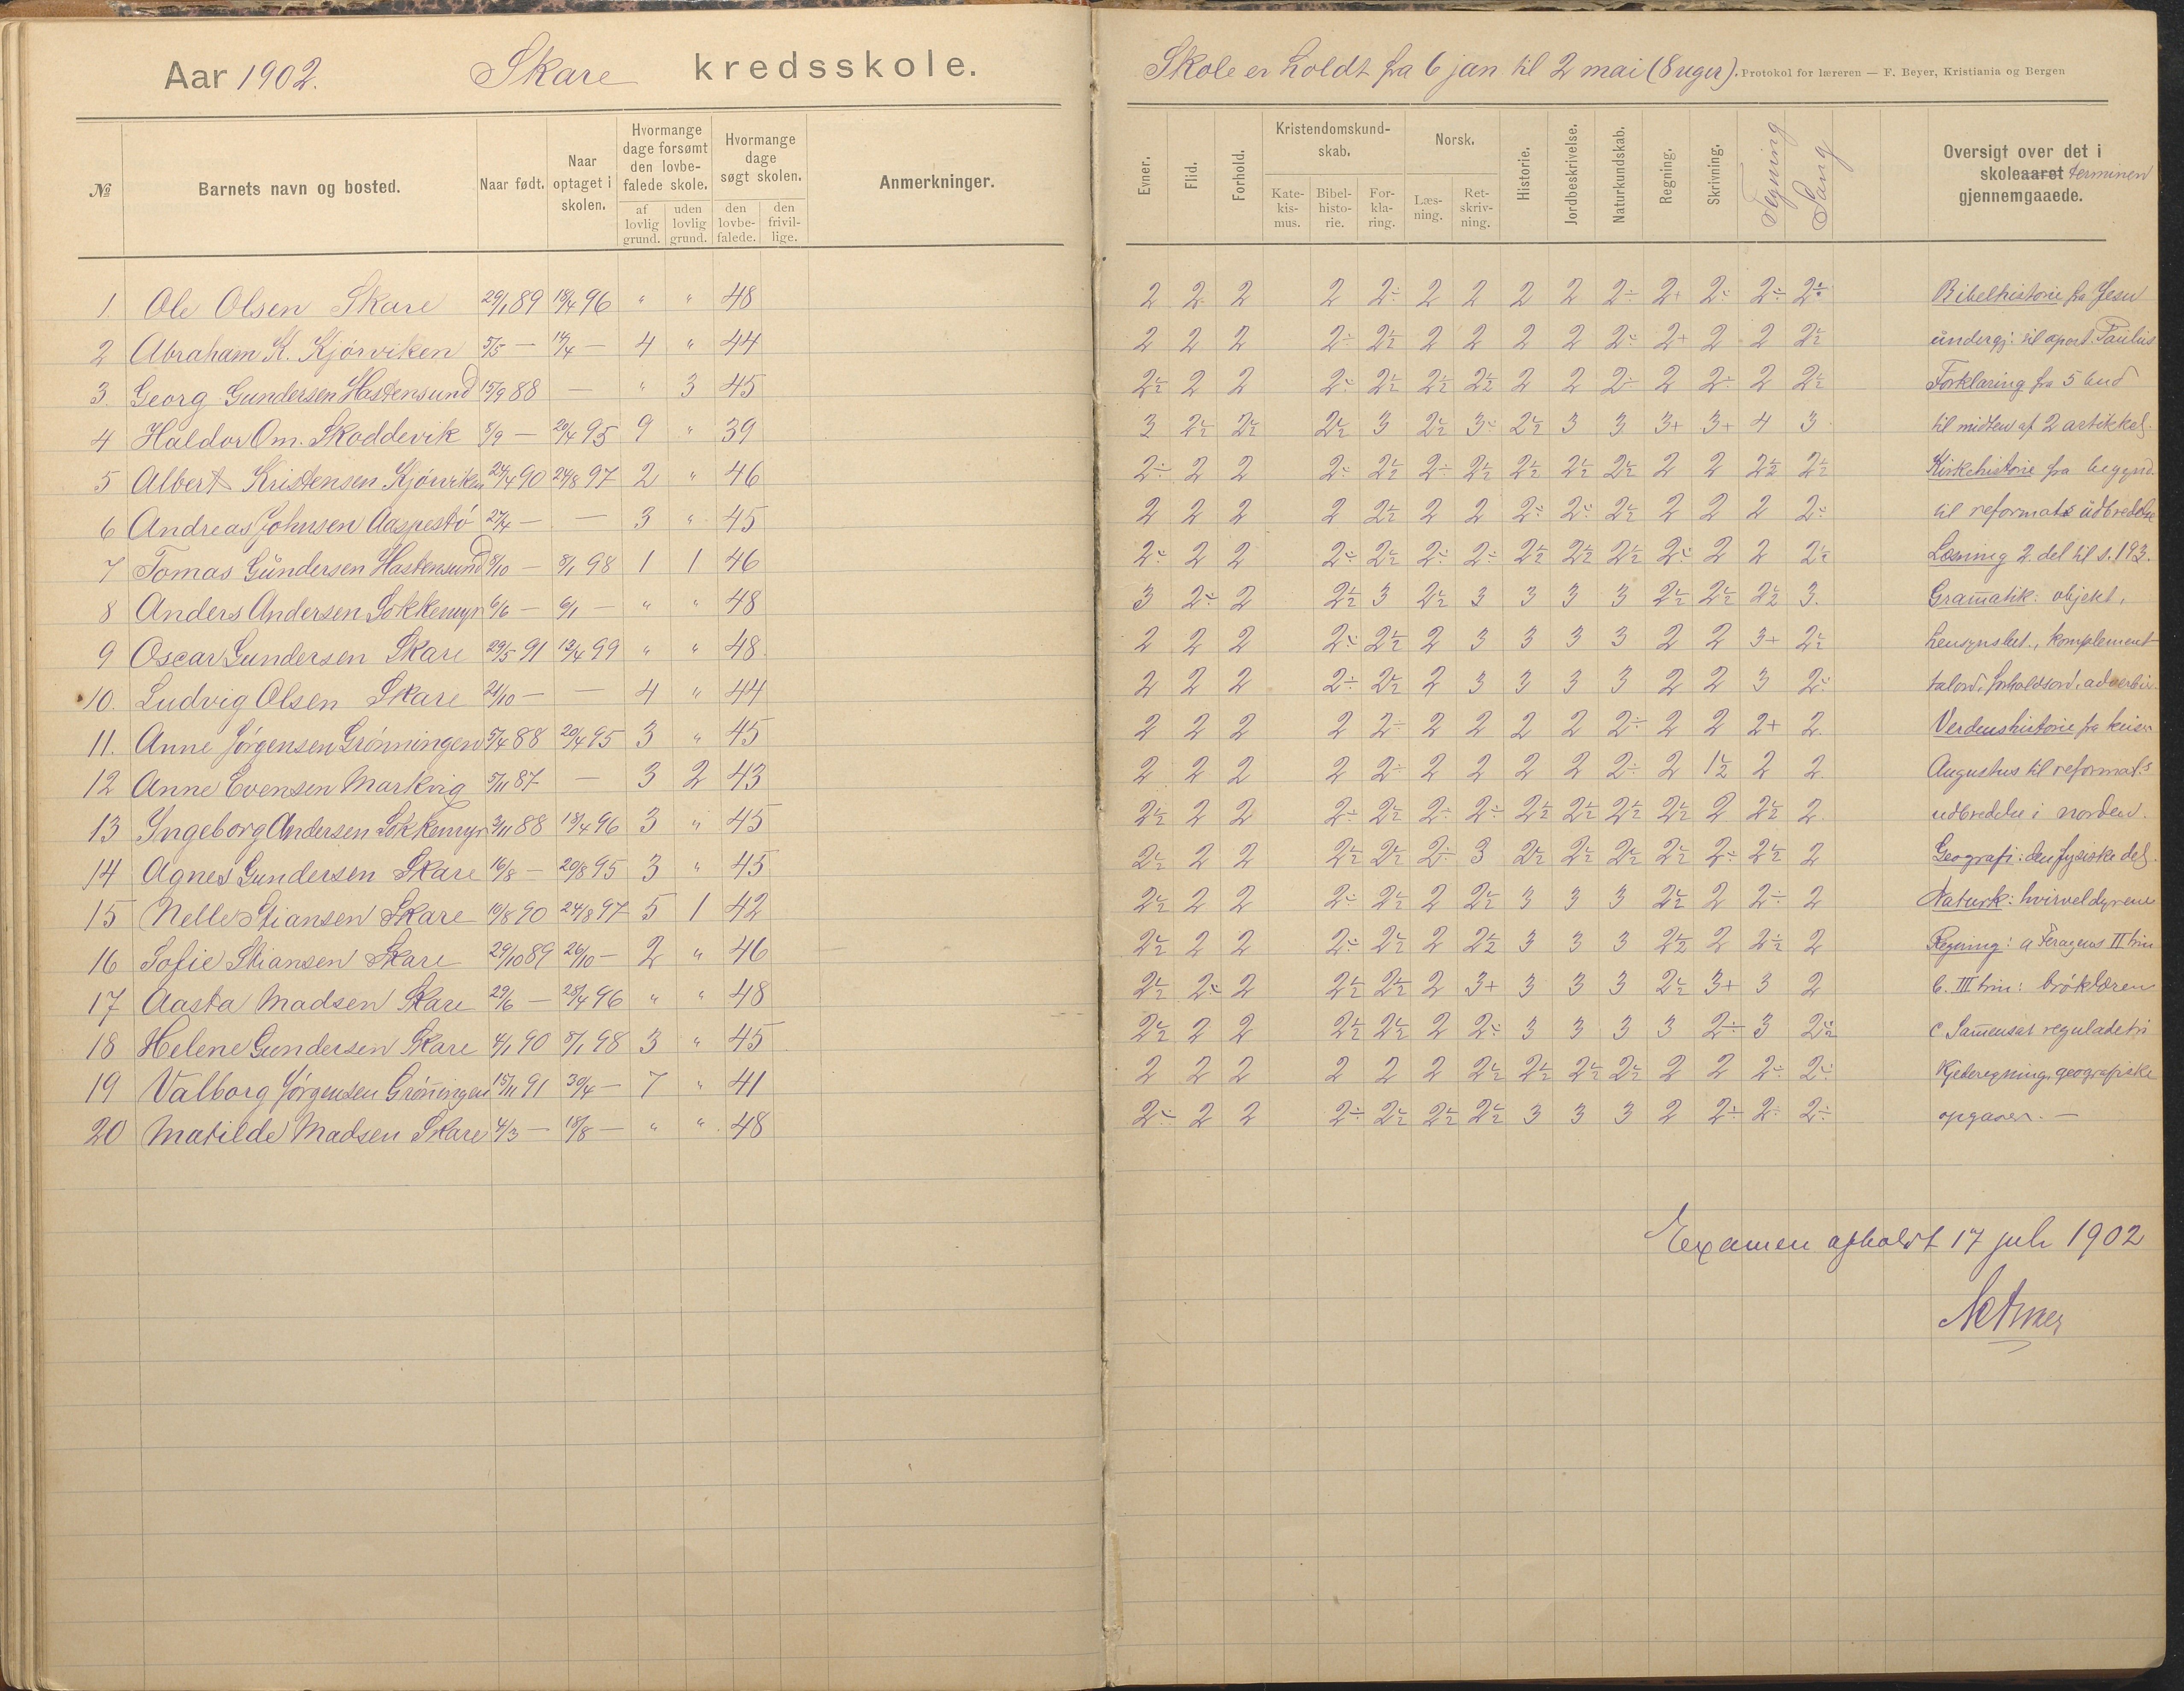 Aar 1902. Skare kredsskole.
№ Barnets navn og bosted. Naar født. Naar optaget i skolen. Hvormange dage forsømt den lovbefalede skole. af lovlig grund. uden lovlig grund. Hvormange dage søgt skolen. den lovbefalede. den frivillige. Anmerkninger.
1 Ole Olsen Skare 29/1 89 18/4 96 " " 48
2 Abraham K. Kjørviken 5/5 — 14/4 — 4 " 44
3 Georg Gundersen Hastensund 15/9 88 — " 3 45
4 Haldor Om. Skoddevik 5/9 — 20/4 95 9 " 39
5 Albert Kristensen Kjørviken 24/4 90 24/8 97 2 " 46
6 Andreas Johnsen Aaspestø 27/4 — — 3 " 45
7 Tomas Gundersen Hastensund 8/10 — 8/1 98 1 1 46
8 Anders Andersen Løkkemyr 6/6 — 6/1 — " " 48
9 Oscar Gundersen Skare 29/5 91 12/4 99 " " 48
10. Ludvig Olsen Skare 21/10 — — 4 " 44
11. Anne Jørgensen Grønningen 5/4 88 20/4 95 3 " 45
12 Anne Evensen Markvig 5/11 87 — 3 2 43
13 Ingeborg Andersen Løkkemyr 3/11 88 18/4 96 3 " 45
14 Agnes Gundersen Skare 16/8 — 20/8 95 3 " 45
15 Nelle Stiansen Skare 10/8 90 24/8 97 5 1 42
16 Sofie Stiansen Skare 29/10 89 26/10 — 2 " 46
17 Aasta Madsen Skare 29/6 — 28/4 96 " " 48
18 Helene Gundersen Skare 4/1 90 8/1 98 3 " 45
19 Valborg Jørgensen Grøn̄ingen 15/11 91 30/4 — 7 " 41
20 Matilde Madsen Skare 4/3 — 18/8 — " " 48
Skole er holdt fra 6 jan til 2 mai (8 uger). Protokol for læreren — F. Beyer, Kristiania og Bergen
Evner. Flid. Forhold. Kristendomskundskab. Katekismus. Bibelhistorie. Forklaring. Norsk. Læsning. Retskrivning. Historie. Jordbeskrivelse. Naturkundskab. Regning. Skrivning. Tegning Sang Oversigt over det i skoleaaret terminen gjennemgaaede.
2 2 2 2 2÷ 2 2 2 2 2÷ 2+ 2÷ 2÷ 2÷ Bibelhistorie fra Jesu
2 2 2 2÷ 2½ 2 2 2 2 2÷ 2+ 2 2 2½ undergj: til apost. Paulus
2½ 2 2 2÷ 2½ 2½ 2½ 2 2 2÷ 2 2÷ 2 2½ Forklaring fra 5 bud
3 2½ 2½ 2½ 3 2½ 3÷ 2½ 3 3 3+ 3+ 4 3 til midten af 2 artikkel.
2÷ 2 2 2÷ 2½ 2÷ 2½ 2½ 2½ 2½ 2 2 2½ 2½ Kirkehistorie fra begynd.
2 2 2 2 2½ 2 2 2÷ 2÷ 2½ 2 2 2 2÷ til reformats udbredelse
2÷ 2 2 2÷ 2½ 2÷ 2÷ 2½ 2½ 2½ 2÷ 2 2 2½ Læsning 2. del til s. 193.
3 2÷ 2 2½ 3 2½ 3 3 3 3 2½ 2½ 2½ 3. Gram̄atik: objekt,
2 2 2 2÷ 2½ 2 3 3 3 3 2 2 3+ 2½ hensynsbet., komplement
2 2 2 2÷ 2½ 2 3 3 3 3 2 2 3 2÷ talord, forholdsord, adverbier.
2 2 2 2 2÷ 2 2 2 2 2÷ 2 2 2+ 2. Verdenshistorie fra keiser
2 2 2 2 2÷ 2 2 2 2 2÷ 2 1½ 2 2. Augustus til reformat.s
2½ 2 2 2÷ 2½ 2÷ 2÷ 2½ 2½ 2½ 2½ 2 2½ 2. udbredelse i norden.
2½ 2 2 2½ 2½ 2÷ 3 2½ 2½ 2½ 2½ 2÷ 2½ 2 Geografi: den fysiske del.
2½ 2 2 2÷ 2½ 2 2½ 3 3 3 2½ 2 2÷ 2 Naturk: hvirveldyrene
2½ 2 2 2÷ 2½ 2 2½ 3 3 3 2½ 2 2½ 2 Regning: a Feragens II trin
2½ 2÷ 2 2½ 2½ 2 3+ 3 3 3 2½ 3+ 3 2 b. III trin: brøklæren
2½ 2 2 2½ 2½ 2 2÷ 3 3 3 3 2÷ 3 2½ c Sam̄ensat reguladetri
2 2 2 2 2 2 2½ 2½ 2½ 2½ 2 2 2÷ 2÷ Kjederegning, geografiske
2÷ 2 2 2÷ 2½ 2½ 2½ 3 3 3 2 2÷ 2÷ 2÷ opgaver. —
Examen afholdt 17 juli 1902